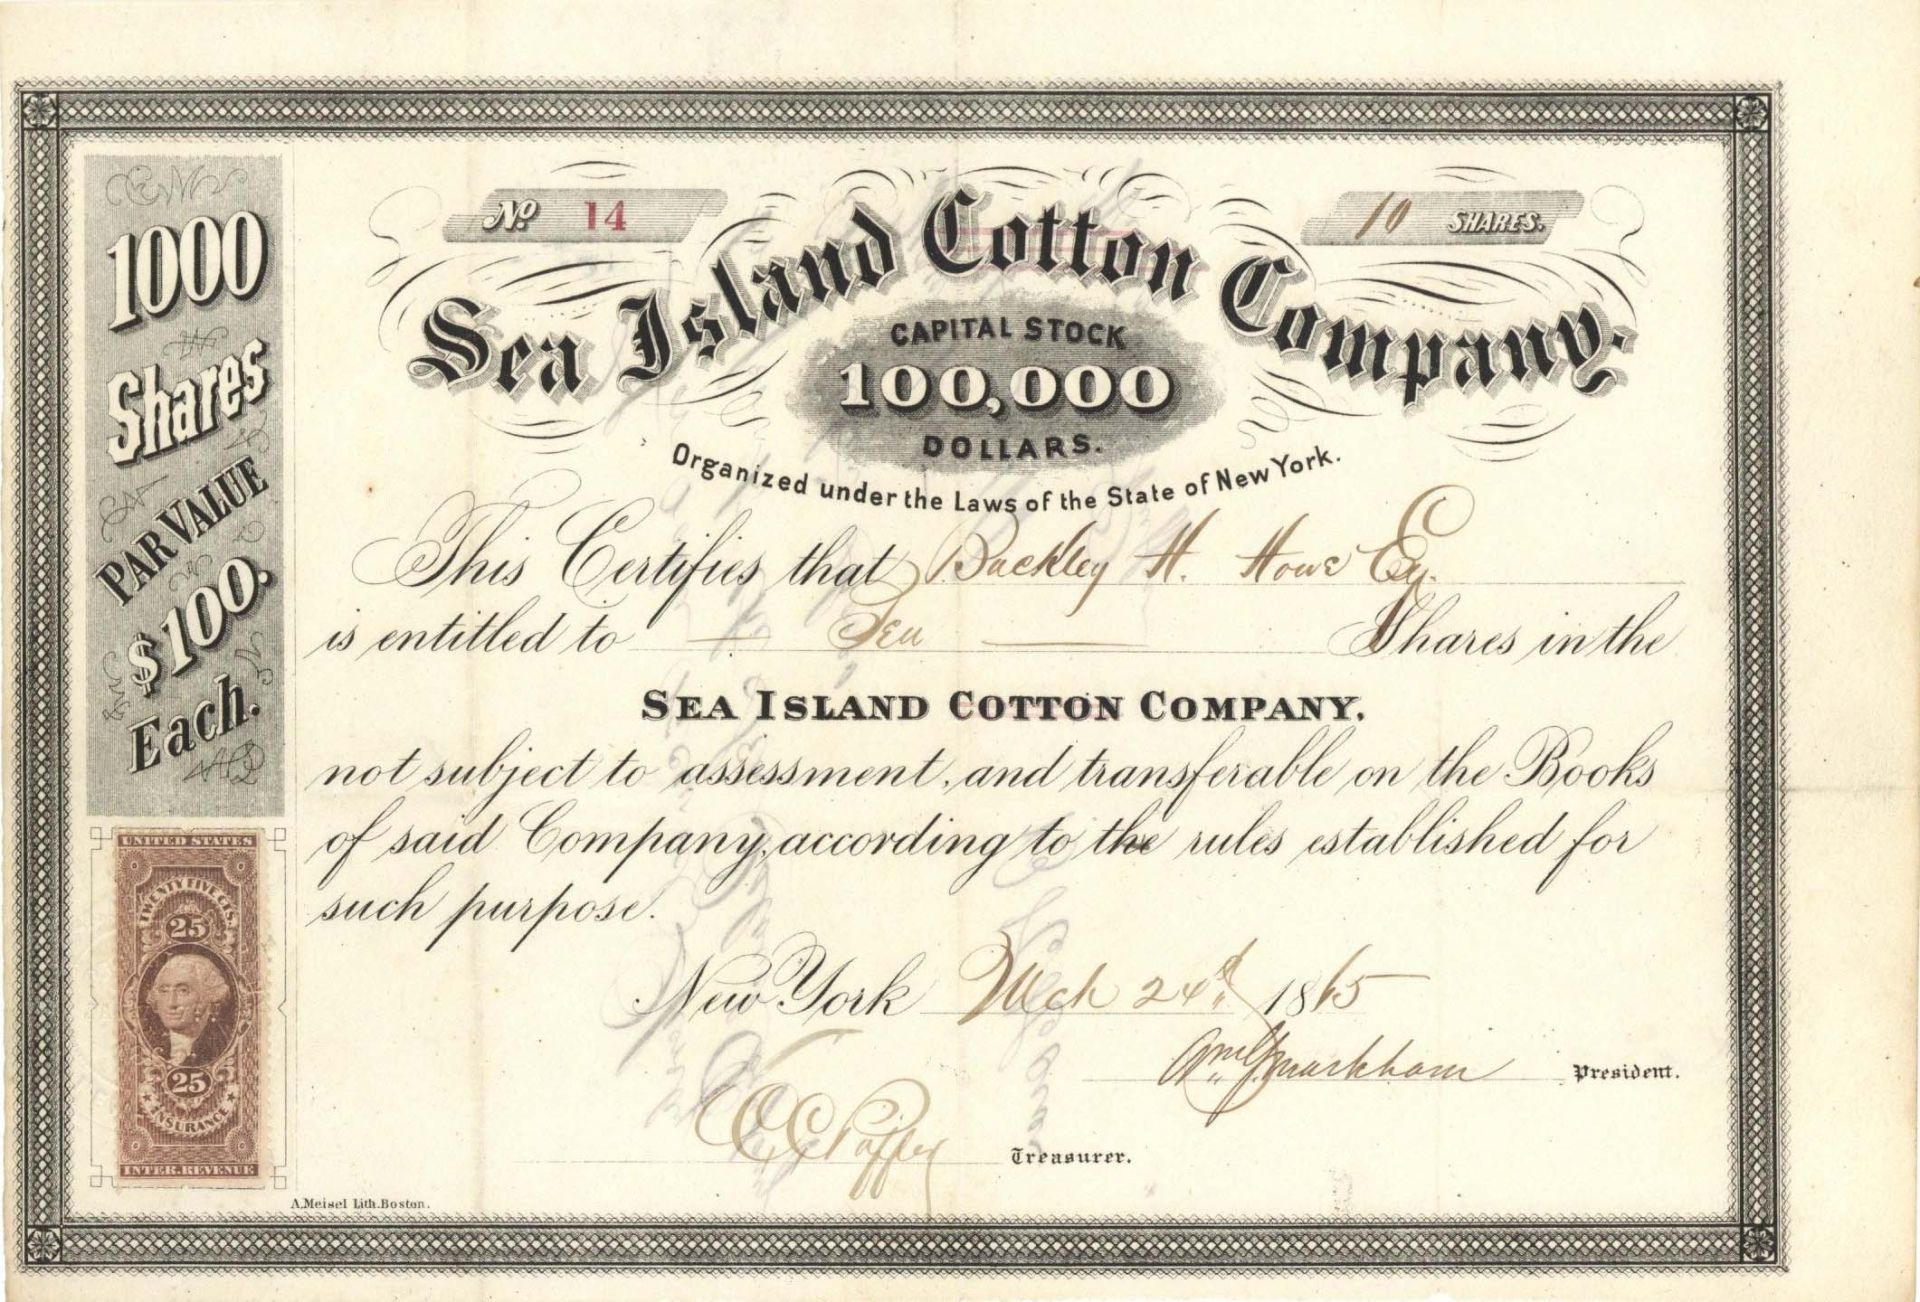 No 14
10 SHARES.
Sea Island Cotton Company.
CAPITAL STOCK
100,000
DOLLARS.
Organized under the Laws of the State of New York.
1000
Shares
PAR VALUE
$100.
Each.
This Certifies that Buckley H. Howe
is entitled to Ten Shares in the
SEA ISLAND COTTON COMPANY.
not subject to assessment, and transferable on the Books
of said Company, according to the rules established for
such purpose.
New York Mch 24 1865
Wm J. Markham President.
Treasurer.
UNITED STATES
TWENTY FIVE CTS.
25
25
INSURANCE
INTER. REVENUE
A. Meisel Lith. Boston.